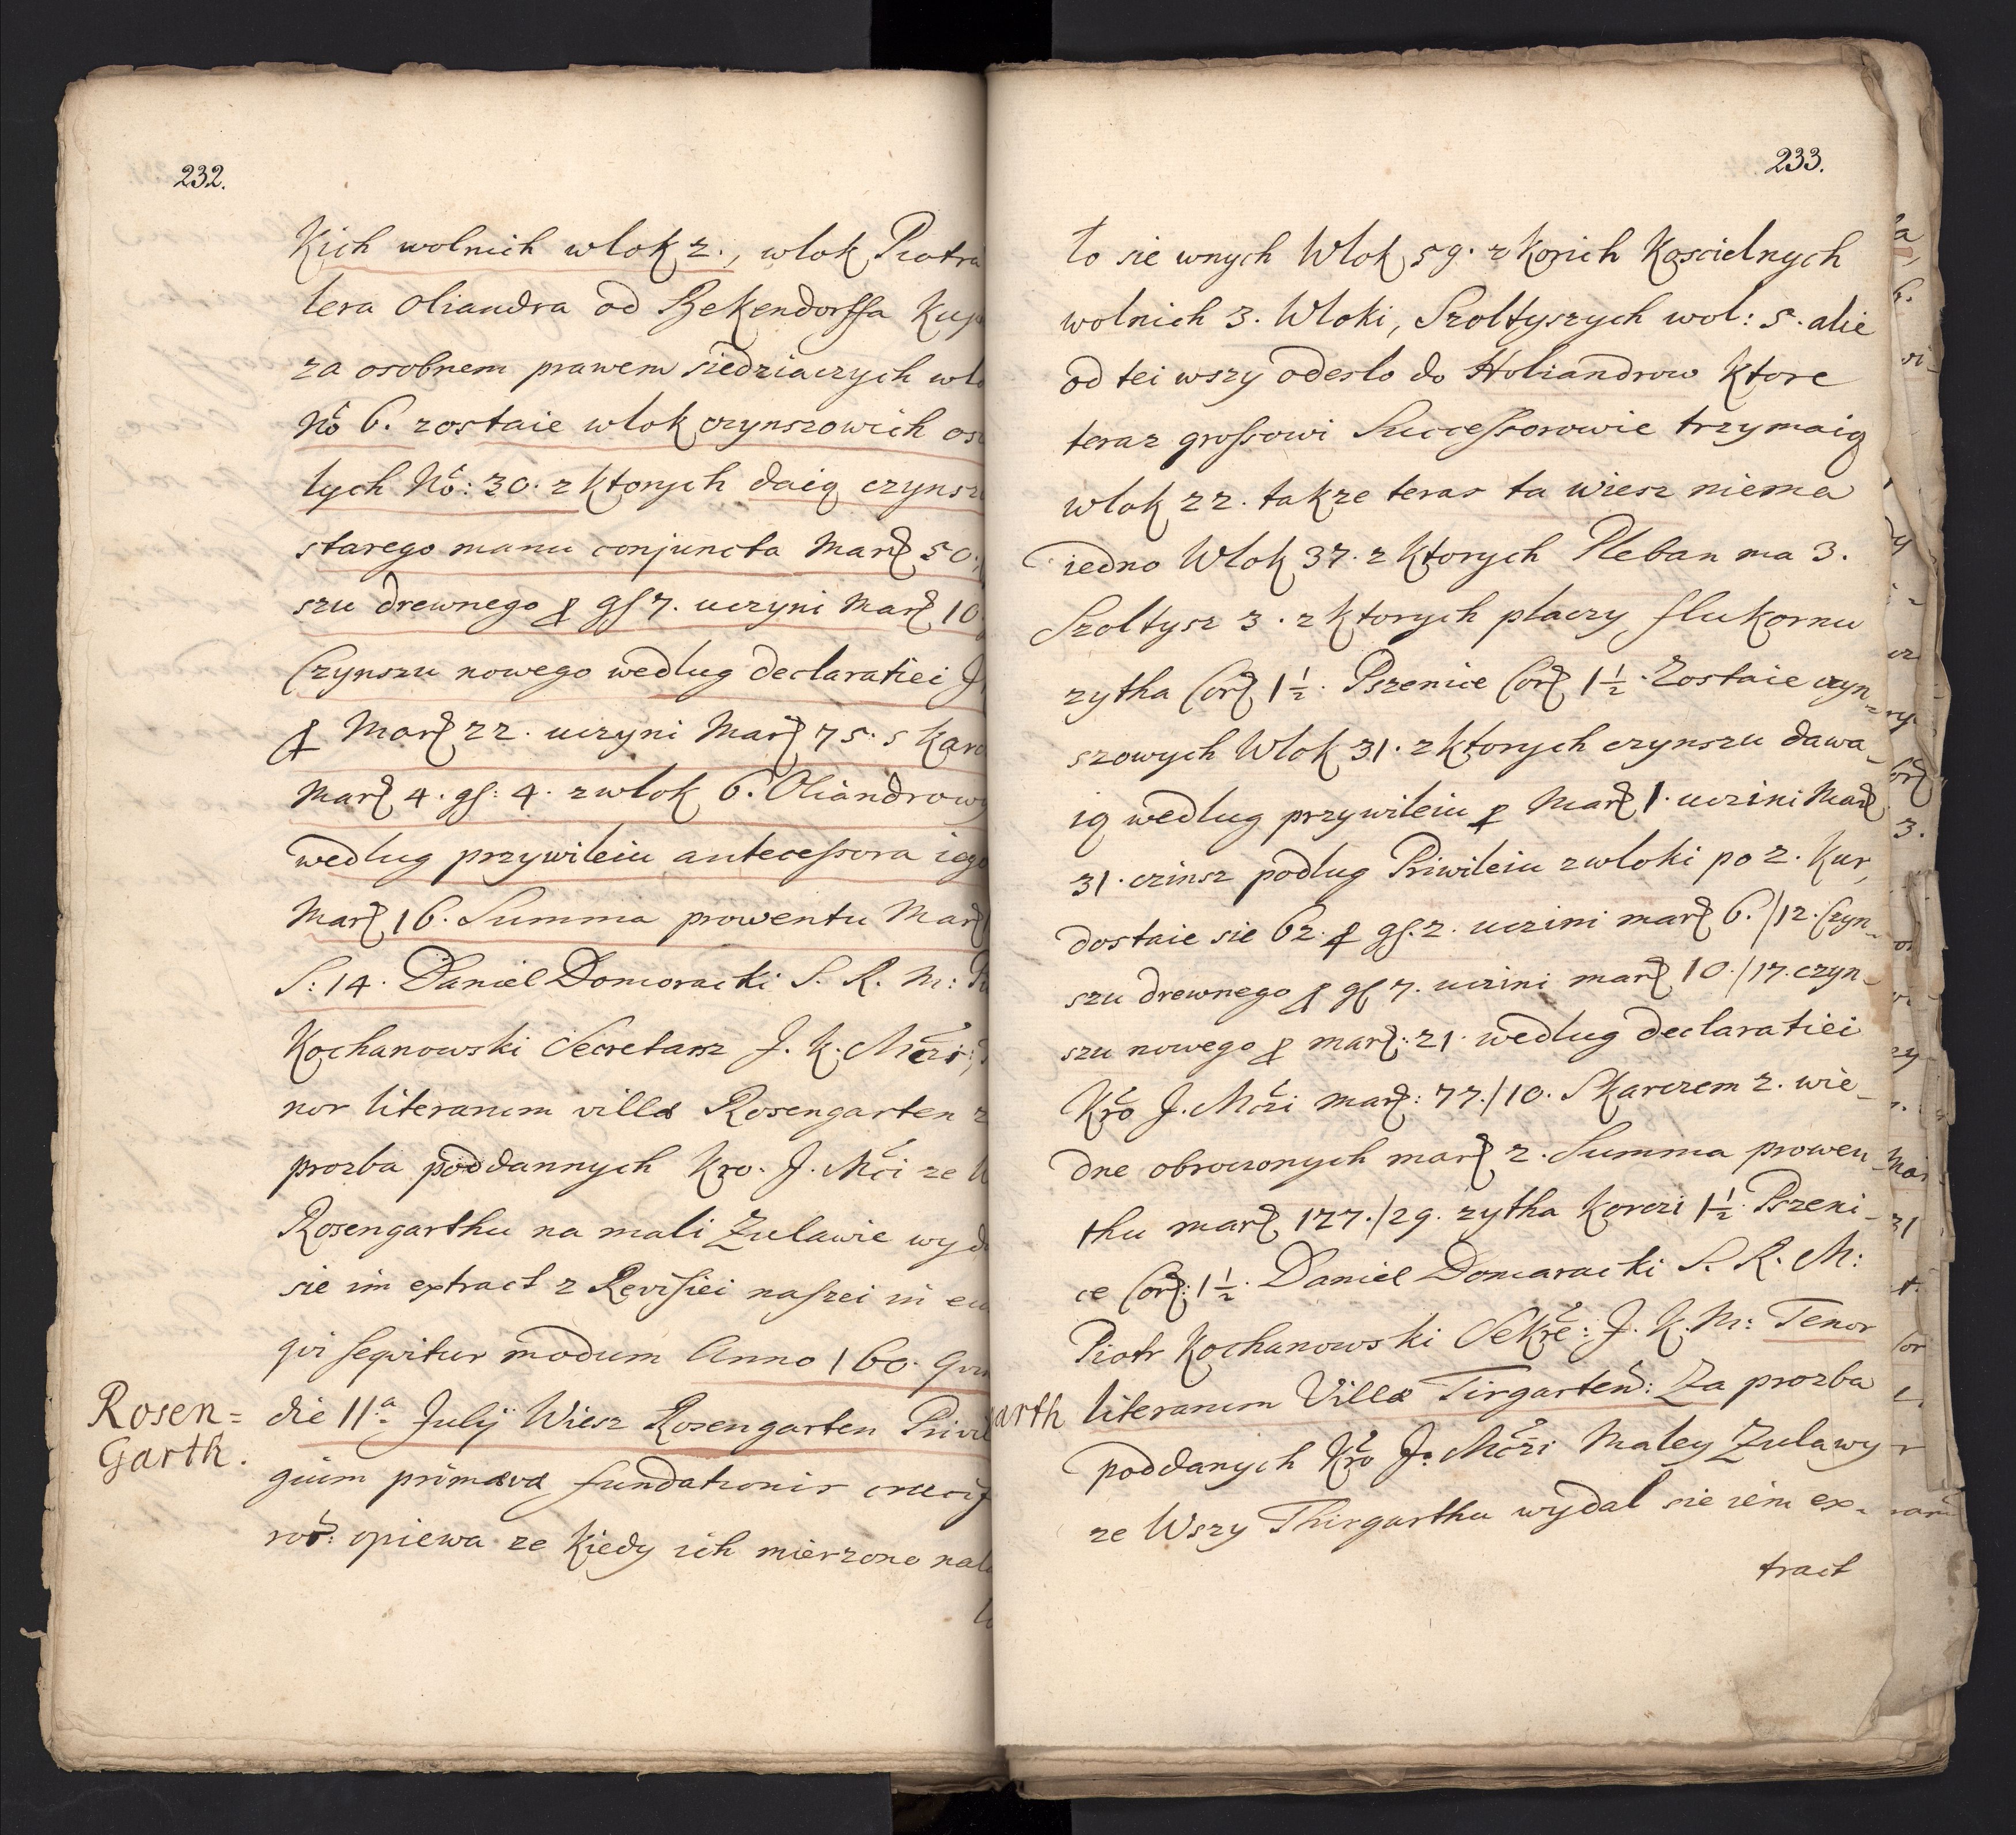 232.
Kich wolnich wlok 2., wlok Piotra
tera Oliandra od Bekendorffa Kup
za osobnem prawem siedziaczych wlo
No 6. zostaie wlok czynszowich os
lych No: 30. z ktorych daią czynsz
starego manu conjuncta Marz 50.
szu drewnego p gſ 7. uczyni Marz 10.
Czynszu nowego według declaratiei J
p Marz 22. uczyni Marz 75. s Karc
Marz 4. gſ: 4. z wlok 6. Oliandrowy
według przywileiu anteceſsora iego
Marz 16. Summa prowentu Marz
S: 14. Daniel Domoracki S. R. M:
Kochanowski Secretarz J. K. Mczi;
nor literarum villæ Rosengarten z
prozba poddannych Kro. J. Mci ze W
Rosengarthu na mali Zulawie wyd
sie im extract z Reviſiei naſzei in eu
qvi ſeqvitur modum Anno 160. Qvin
Rosen=
Garth.
die 11a Julij Wiesz Rosengarten Privil
gium primævæ fundationis crucif
ror: opiewa ze Kiedy ich mierzono nal
233.
to sie wnych Wlok 59. z Korich Koscielnych
wolnich 3. Wloki, Szoltyszych wol: 5. alie
od tei wszy odeslo do Holiandrow Ktore
teraz groſsowi Succeſsorowie trzymaią
wlok 22. takze teras ta wiesz niema
iedno Wlok 37. z Ktorych Pleban ma 3.
Szoltysz 3. z ktorych placzy flukornu
zytha Corz 1 1/2. Pszenice Corz 1 1/2. Zostaie czyn=
szowych Wlok 31. z ktorych czynszu dawa-
ią według przywileiu p Marz 1. uczini Marz
31. czinsz podlug Priwileiu z wloki po 2. Kur,
dostaie sie 62. p gſ. 2. uczini marz 6./12. Czyn-
szu drewnego p gſ 7. uczini marz 10./17. czyn-
szu nowego p marz: 21. według declaratiei
Kro J. Mczi marz: 77./10. S Karczem 2. wie-
dne obroconych marz 2. Summa prowen-
thu marz 127./29. zytha Korczi 1 1/2. Pszeni-
ce Corz: 1 1/2. Daniel Domaracki S. R. M:
Piotr Kochanowski Sekre: J. K. M: Tenor
arth
literarum Villæ Tirgarten: Za prozba
poddanych Kro J. Mczi Maley Zulawy
ze Wszy Thirgarthu wydal sie iem ex-
tract